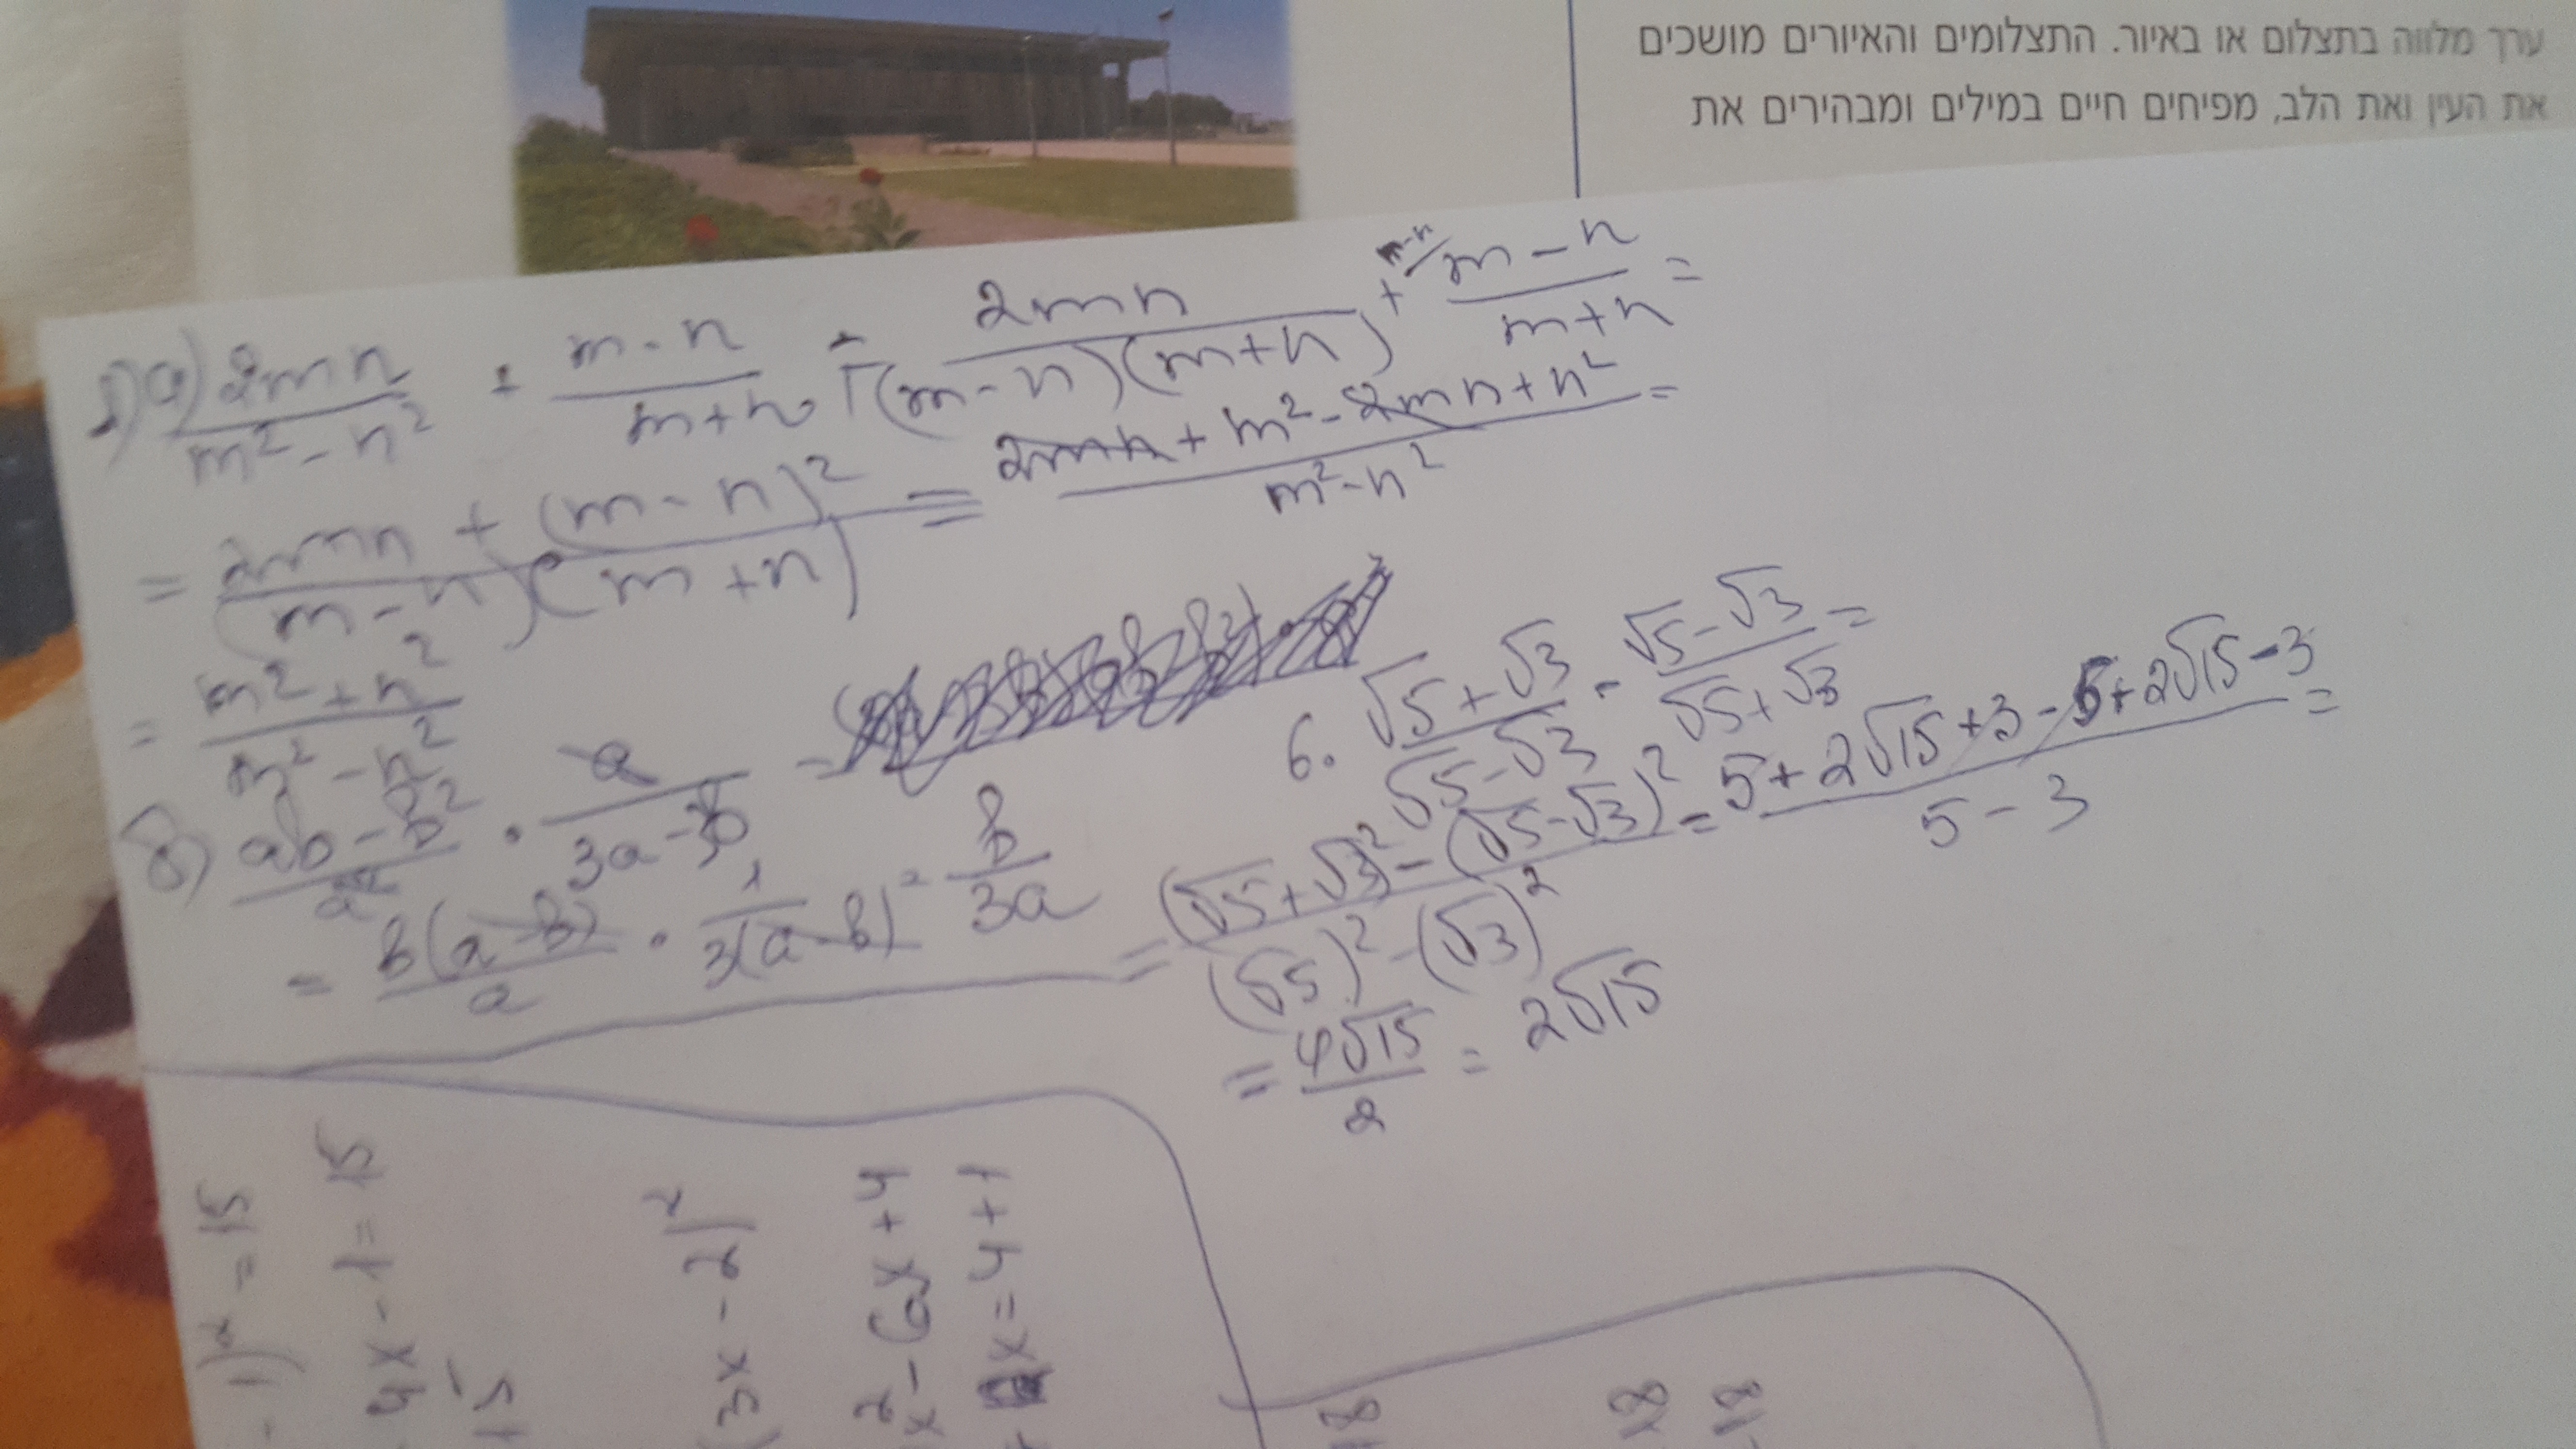 ערך מלווה בתצלום או באיור. התצלומים והאיורים מושכים
את העין ואת הלב, מפיחים חיים במילים ומבהירים את
1) a) 2mn/(m² - n²) + (m - n)/(m + n) = 2mn/((m - n)(m + n)) + (m - n)/(m + n) =
= (2mn + (m - n)²)/((m - n)(m + n)) = (2mn + m² - 2mn + n²)/(m² - n²) =
= (m² + n²)/(m² - n²)
б) (ab - b²)/a² · a/(3a - 3b) =
= b(a - b)/a · 1/(3(a - b)) = b/(3a)
6. (√5 + √3)/(√5 - √3) - (√5 - √3)/(√5 + √3) =
= ((√5 + √3)² - (√5 - √3)²)/((√5)² - (√3)²) = (5 + 2√15 + 3 - 5 + 2√15 - 3)/(5 - 3) =
= 4√15/2 = 2√15
- 1)² = 15
4x - 1 = 15
15
(3x - 2)²
x² - 6x + 4
x = 4 + 1
18
18
18